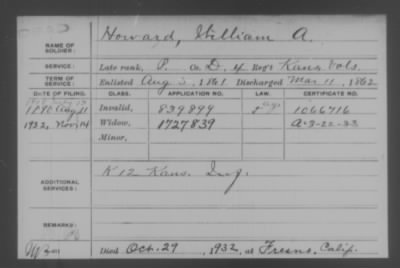 NAME OF SOLDIER: Howard, William A.
SERVICE: Late rank, P. Co. D, 4 Reg't Kans. Vols.
TERM OF SERVICE: Enlisted Aug 3, 1861 Discharged Mar 11, 1862
DATE OF FILING. CLASS. APPLICATION NO. LAW. CERTIFICATE NO.
1890 Aug 11 Invalid, 839899 1066716
1932, Nov 14 Widow, 1727839 A-3-22-33
Minor,
ADDITIONAL SERVICES: K 12 Kans. Inf.
REMARKS:
Died Oct. 29, 1932, at Fresno, Calif.